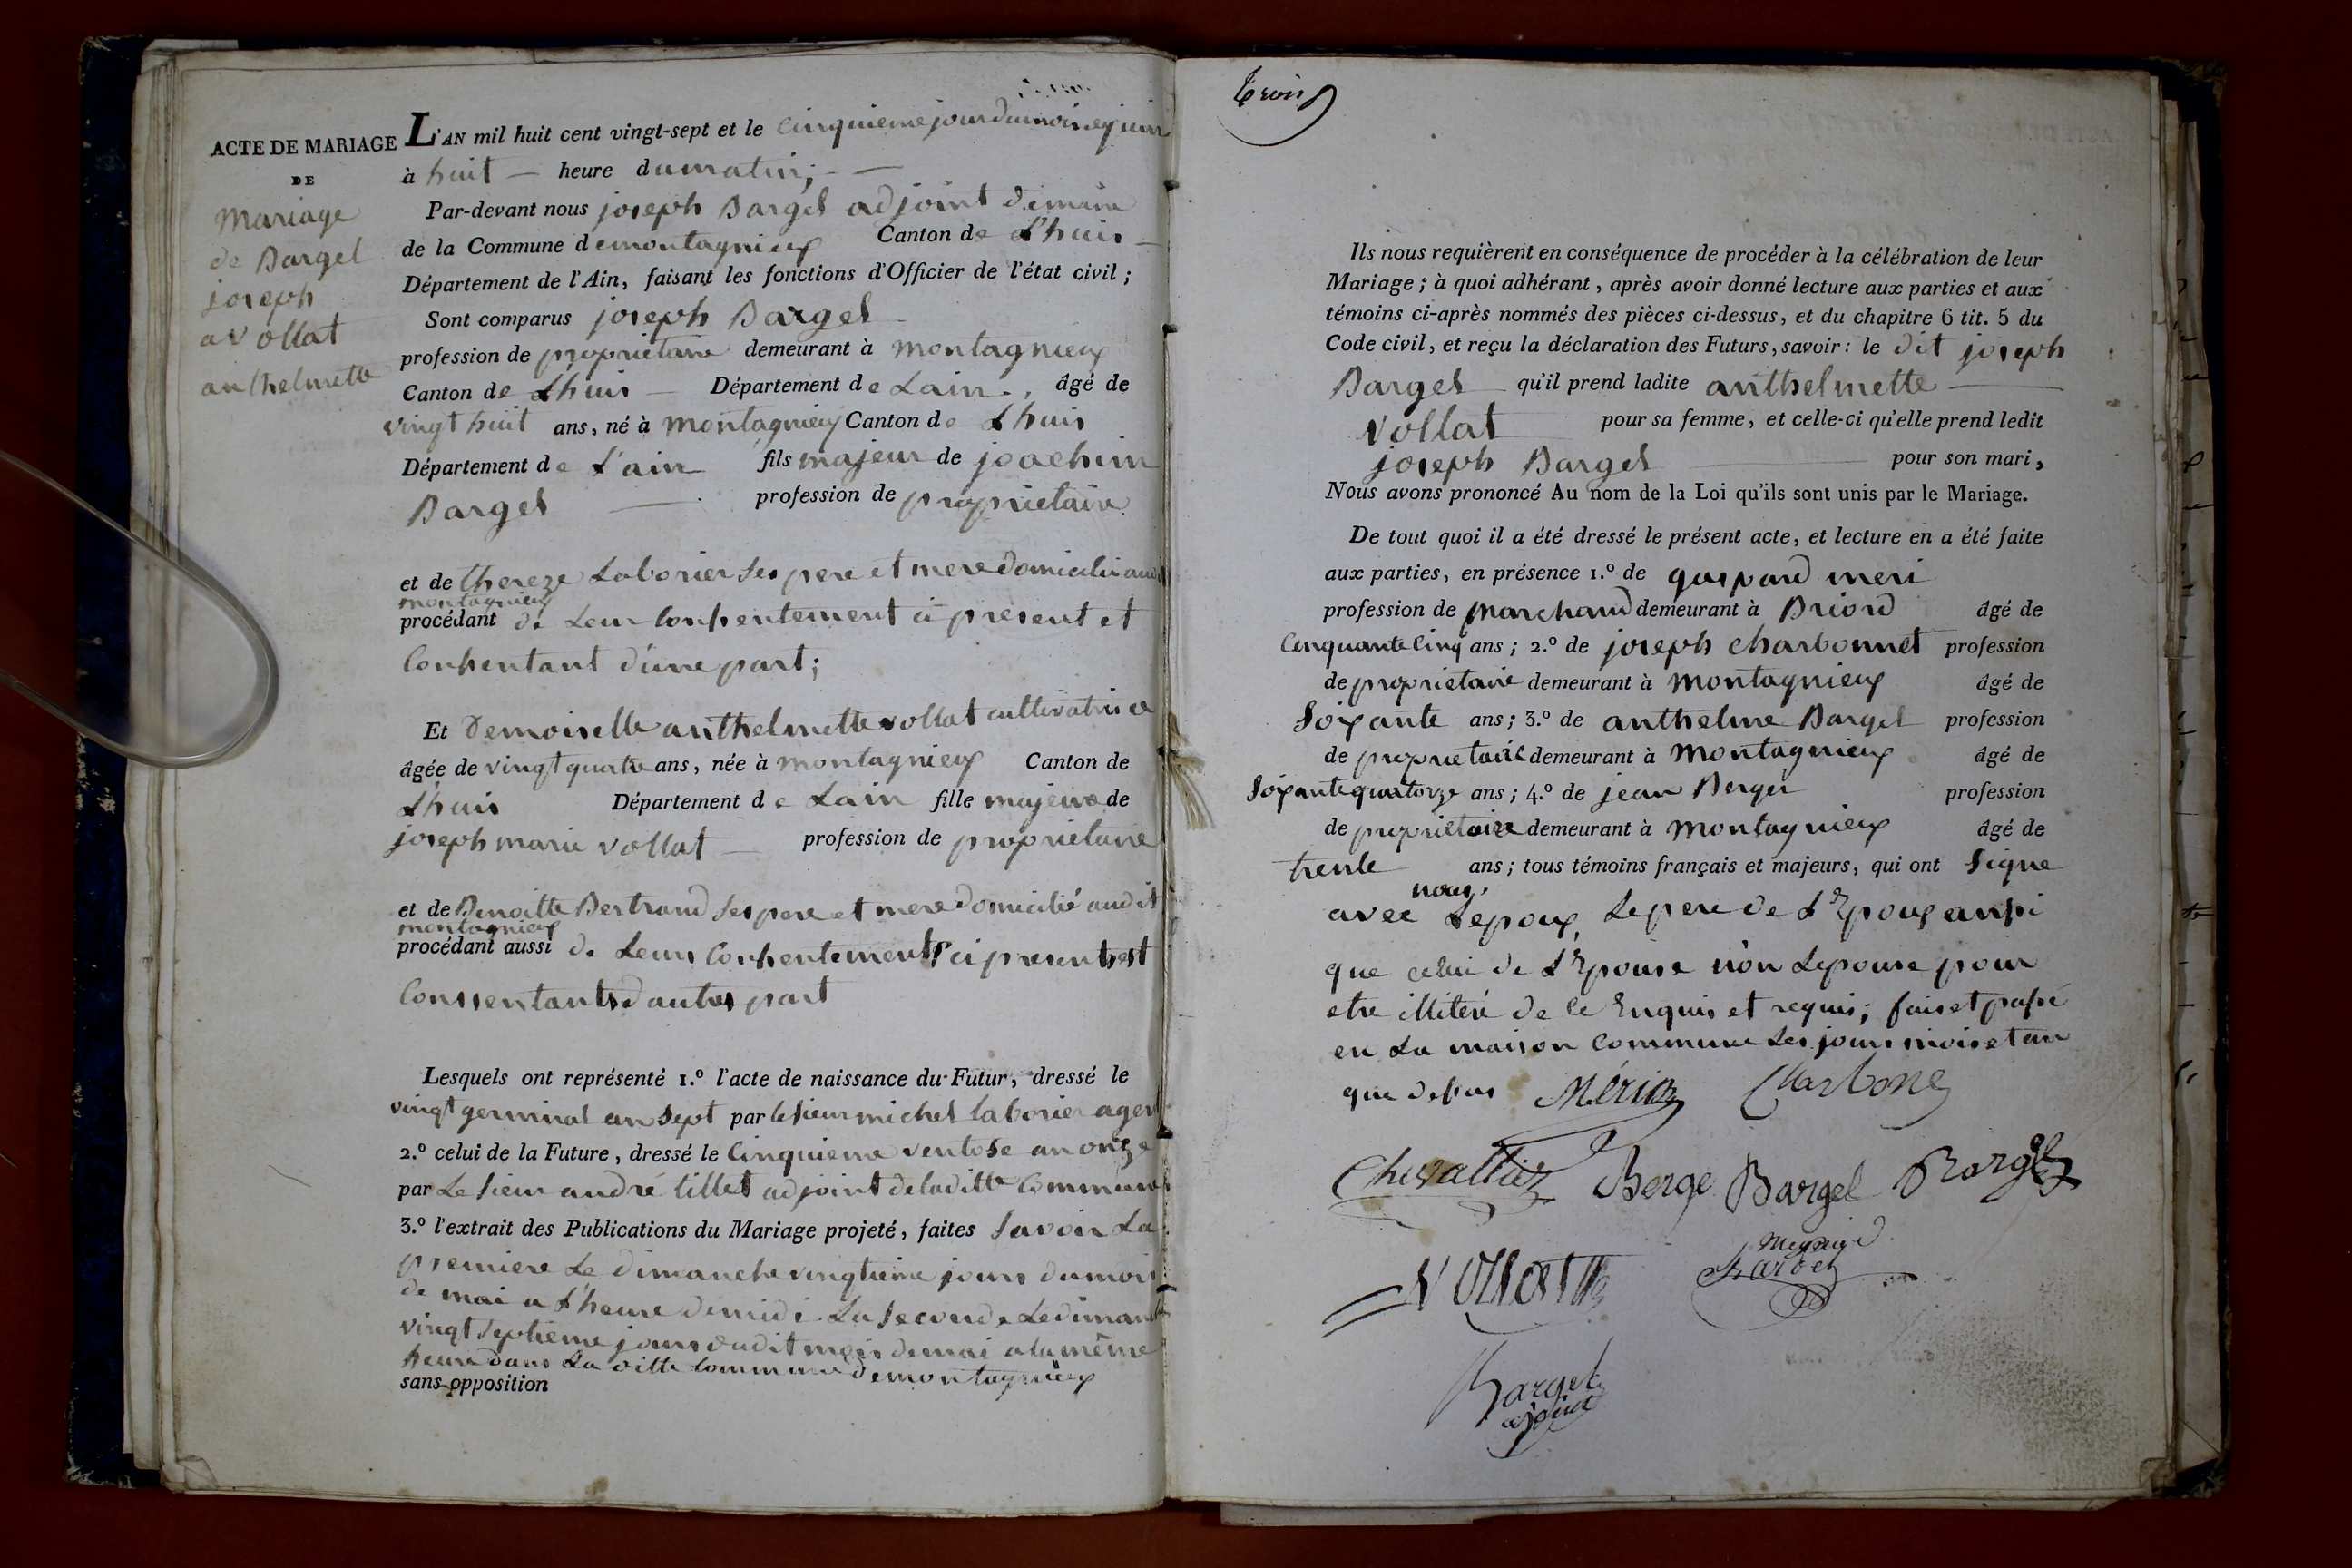 ACTE DE MARIAGE
DE
Mariage
de Bargel
joseph
a vollat
anthelmette
L'AN mil huit cent vingt-sept et le cinquieme jour du mois de juin
à huit — heure du matin; —
Par-devant nous joseph Bargel adjoint demaire
de la Commune demontagnieux Canton de L'huis —
Département de l'Ain, faisant les fonctions d'Officier de l'état civil;
Sont comparus joseph Bargel
profession de proprietaire demeurant à montagnieux
Canton de Lhuis — Département de Lain, âgé de
vingt huit ans, né à montagnieux Canton de Lhuis
Département de L'ain fils majeur de joachim
Bargel — profession de proprietaire
et de thereze Laborier ses pere et mere domicilié audit
montagnieux
procédant de Leur Consentement ci present et
Consentant d'une part;
Et Demoiselle anthelmette vollat cultivatrice
âgée de vingt quatre ans, née à montagnieux Canton de
Lhuis Département de Lain fille majeure de
joseph marie vollat — profession de proprietaire
et de Benoitte Bertrand ses pere et mere domicilié audit
montagnieux
procédant aussi de Leurs Consentements ci presents et
Conssentants d'autres part
Lesquels ont représenté 1.º l'acte de naissance du Futur, dressé le
vingt germinal an sept par le sieur michel laborier agent
2.º celui de la Future, dressé le Cinquieme ventose an onze
par Le sieur andré tillet adjoint deladitte Commune
3.º l'extrait des Publications du Mariage projeté, faites Savoir La
premiere Le dimanche vingtieme jours dumois
de mai a L'heure demidi La seconde Ledimanche
vingt septieme jours dudit mois demai ala même
heure dans La ditte Commune demontagnieux
sans opposition
trois
Ils nous requièrent en conséquence de procéder à la célébration de leur
Mariage; à quoi adhérant, après avoir donné lecture aux parties et aux
témoins ci-après nommés des pièces ci-dessus, et du chapitre 6 tit. 5 du
Code civil, et reçu la déclaration des Futurs, savoir: le dit joseph
Bargel qu'il prend ladite anthelmette —
vollat pour sa femme, et celle-ci qu'elle prend ledit
joseph Bargel — pour son mari,
Nous avons prononcé Au nom de la Loi qu'ils sont unis par le Mariage.
De tout quoi il a été dressé le présent acte, et lecture en a été faite
aux parties, en présence 1.º de gaspard meri
profession de marchand demeurant à Briord âgé de
Cinquante Cinq ans; 2.º de joseph charbonnet profession
de proprietaire demeurant à montagnieux âgé de
Soixante ans; 3.º de anthelme Bargel profession
de proprietaire demeurant à montagnieux âgé de
Soixante quatorze ans; 4.º de jean Berger profession
de proprietaire demeurant à montagnieux âgé de
trente ans; tous témoins français et majeurs, qui ont signe
nous
avec Lepoux, Le pere de L'Epoux ansi
que celui de L'Epouse non Lepouse pour
etre illiteré de ce Enquis et requis; fais et passé
en La maison Commune Les jours mois et an
que desus Mérin Charbone
Chevallier Berge Bargel Bargel
Vollat
Bargel
ajoint